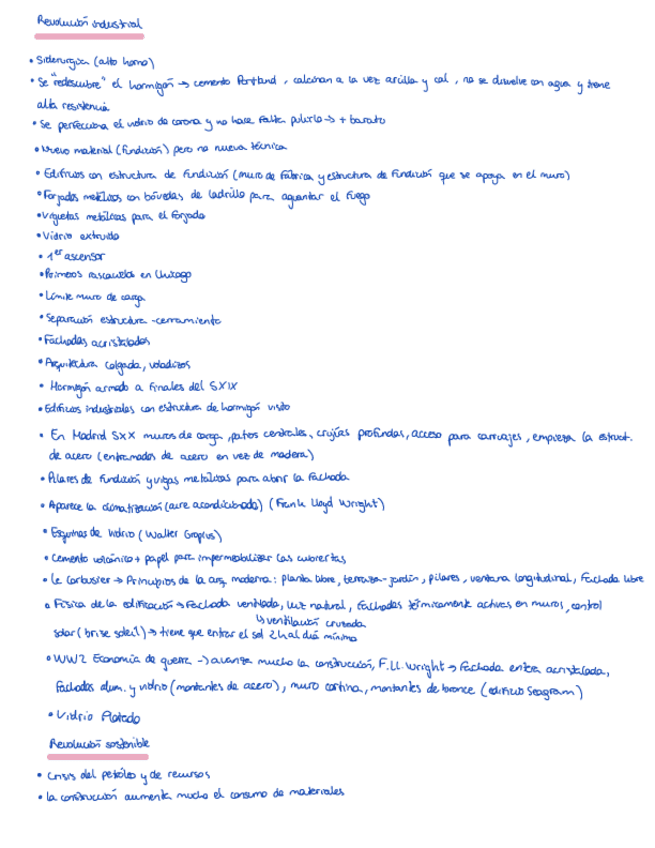 Revolución industrial
• Siderurgia (alto horno)
• Se "redescubre" el hormigón → cemento Portland, calcinan a la vez arcilla y cal, no se disuelve con agua y tiene
alta resistencia
• Se perfecciona el vidrio de corona y no hace falta pulirlo → + barato
• Nuevo material (fundición) pero no nueva técnica
• Edificios con estructura de fundición (muro de fábrica y estructura de fundición que se apoya en el muro)
• Forjados metálicos con bóvedas de ladrillo para aguantar el fuego
• Viguetas metálicas para el forjado
• Vidrio extruido
• 1er ascensor
• Primeros rascacielos en Chicago
• Límite muro de carga
• Separación estructura-cerramiento
• Fachadas acristaladas
• Arquitectura colgada, voladizos
• Hormigón armado a finales del SXIX
• Edificios industriales con estructura de hormigón visto
• En Madrid SXX muros de carga, patios centrales, crujías profundas, acceso para carruajes, empieza la estruct.
de acero (entramados de acero en vez de madera)
• Pilares de fundición y vigas metálicas para abrir la fachada
• Aparece la climatización (aire acondicionado) (Frank Lloyd Wright)
• Esquinas de vidrio (Walter Gropius)
• Cemento volcánico + papel para impermeabilizar las cubiertas
• Le Corbusier → Principios de la arq. moderna: planta libre, terraza-jardín, pilares, ventana longitudinal, fachada libre
• Física de la edificación → Fachada ventilada, luz natural, fachadas térmicamente activas en muros, control
↳ ventilación cruzada
solar (brise soleil) → tiene que entrar el sol 2h al día mínimo
• WW2 Economía de guerra → avanza mucho la construcción, F.LL. Wright → Fachada entera acristalada,
fachadas alum. y vidrio (montantes de acero), muro cortina, montantes de bronce (edificio Seagram)
• Vidrio flotado
Revolución sostenible
• Crisis del petróleo y de recursos
• La construcción aumenta mucho el consumo de materiales